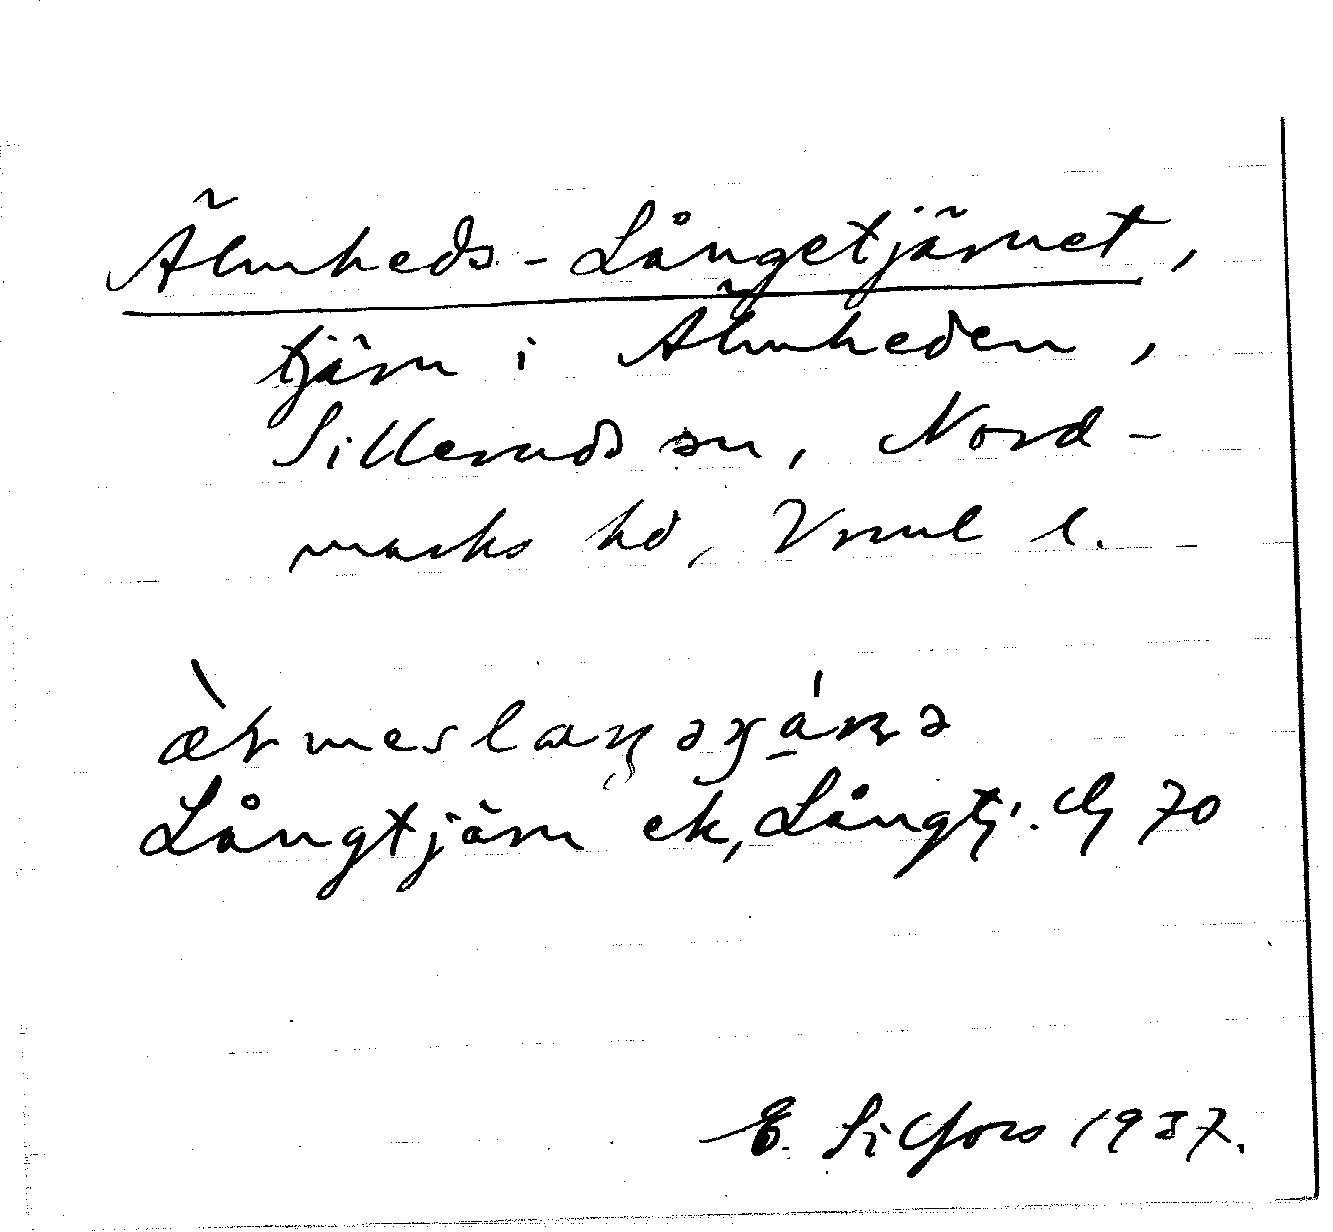 Älmheds-Långetjärnet,
tjärn i Älmheden,
Silleruds sn, Nord-
marks hd, Vrml l.
Långtjärn ek, Långtj.
70
E. Silfors 1937.